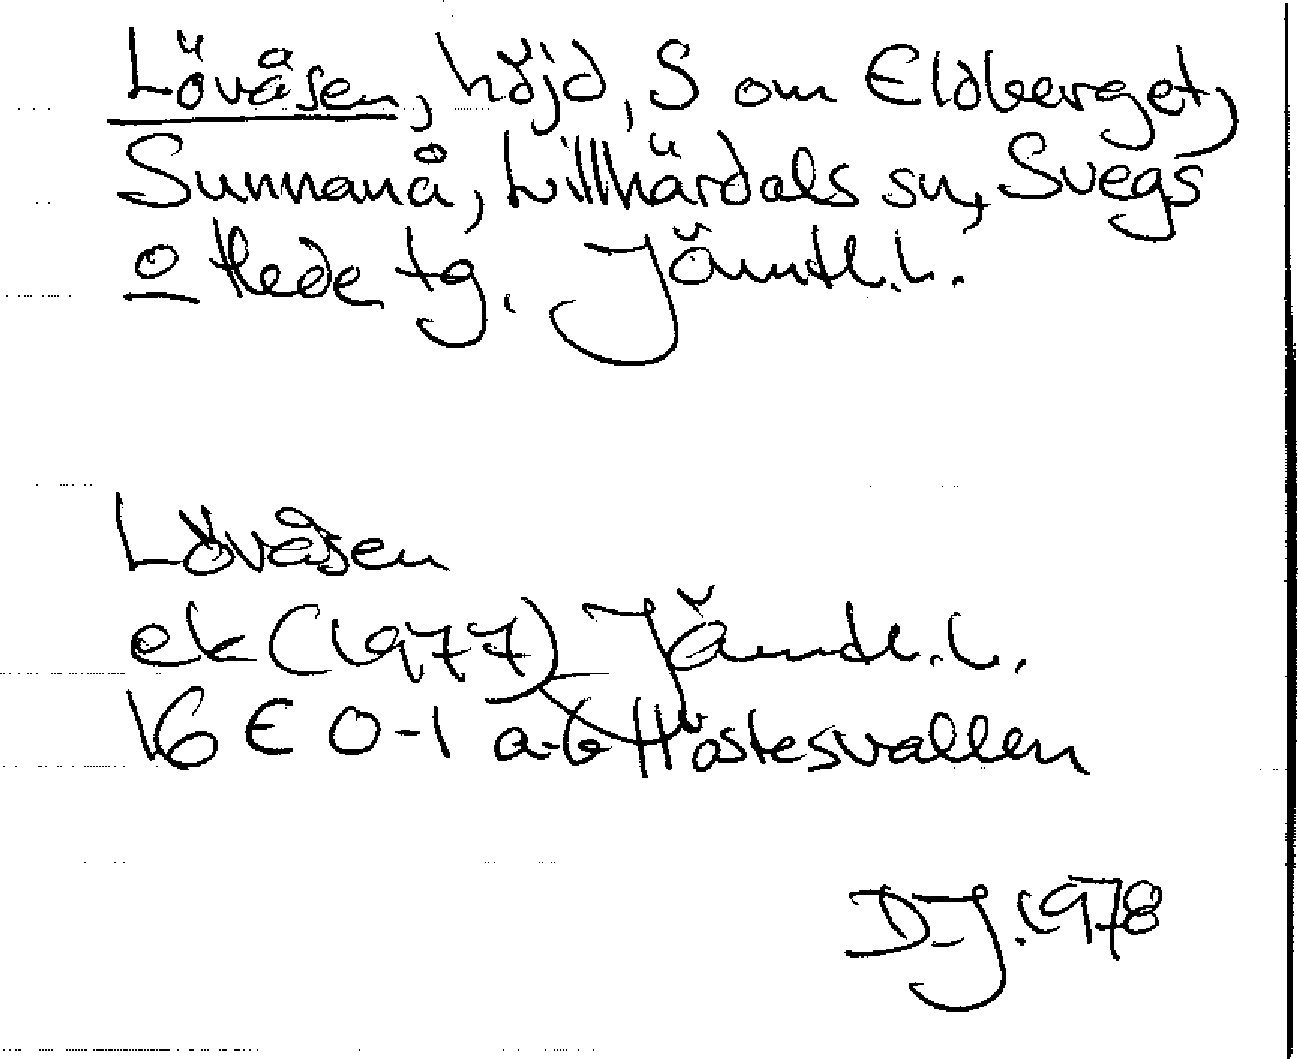 Lövåsen, höjd, S om Eldberget,
Sunnanå, Lillhärdals sn, Svegs
o Hede tg. Jämtl.l.
Lövåsen
ek (1977) Jämtl.l.
16 E 0-1 a-b Höstesvallen
D-J.1978